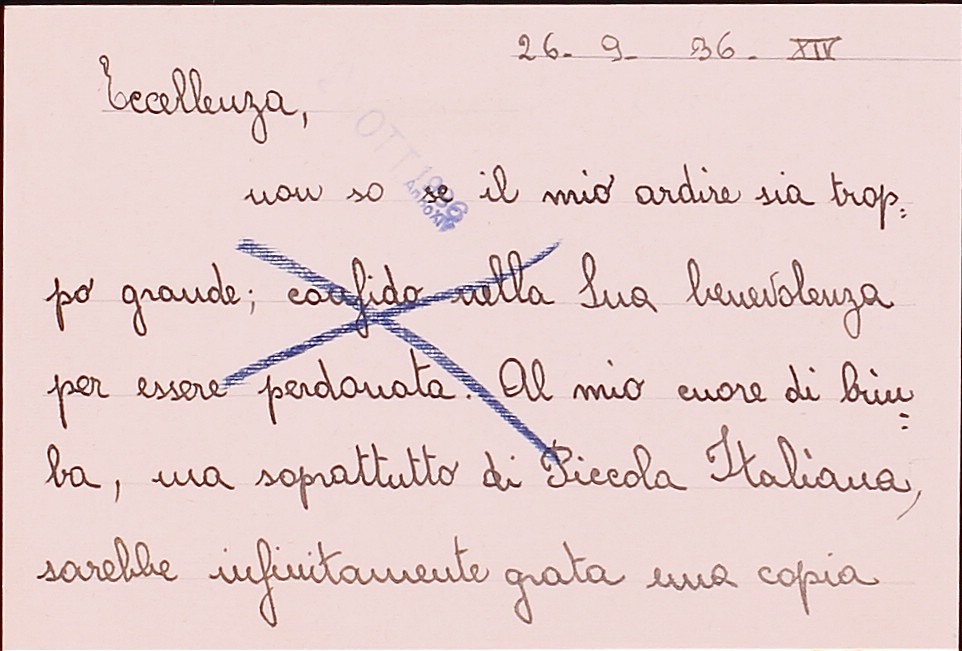 26- 9- 36. XIV
Eccellenza,
OTT 1936
Anno XIV
non so se il mio ardire sia trop=
po grande; confido nella Sua benevolenza
per essere perdonata. Al mio cuore di bim=
ba, ma soprattutto di Piccola Italiana,
sarebbe infinitamente grata una copia